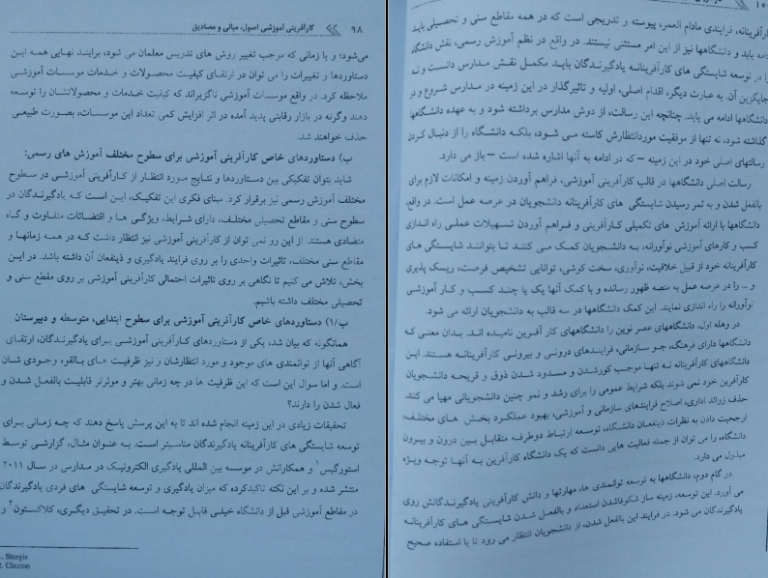 ۹۸ کارآفرینی آموزشی اصول، مبانی و مصادیق
می‌شود؛ و یا زمانی که موجب تغییر روش های تدریس معلمان می شود، برایند نهایی همه این
دستاوردها و تغییرات را می توان در ارتقای کیفیت محصولات و خدمات موسسات آموزشی
ملاحظه کرد. در واقع موسسات آموزشی ناگزیراند که کیفیت خدمات و محصولاتشان را توسعه
دهند وگرنه در بازار رقابتی پدید آمده در اثر افزایش کمی تعداد این موسسات، بصورت طبیعی
حذف خواهند شد.
ب) دستاوردهای خاص کارآفرینی آموزشی برای سطوح مختلف آموزش های رسمی:
شاید بتوان تفکیکی بین دستاوردها و نتایج مورد انتظار از کارآفرینی آموزشی در سطوح
مختلف آموزش رسمی نیز برقرار کرد. مبنای فکری این تفکیک، این است که یادگیرندگان در
سطوح سنی و مقاطع تحصیلی مختلف، دارای شرایط، ویژگی ها و اقتضائات متفاوت و گاه
متضادی هستند. از این رو نمی توان از کارآفرینی آموزشی نیز انتظار داشت که در همه زمانها و
مقاطع سنی مختلف، تاثیرات واحدی را بر روی فرایند یادگیری و ذینفعان آن داشته باشد. در این
بخش، تلاش می کنیم تا نگاهی بر روی تاثیرات احتمالی کارآفرینی آموزشی بر روی مقطع سنی و
تحصیلی مختلف داشته باشیم.
ب/۱) دستاوردهای خاص کارآفرینی آموزشی برای سطوح ابتدایی، متوسطه و دبیرستان
همانگونه که بیان شد، یکی از دستاوردهای کارآفرینی آموزشی برای یادگیرندگان، ارتقای
آگاهی آنها از توانمندی های موجود و مورد انتظارشان و نیز ظرفیت های بالقوه وجودی شان
است. و اما سوال این است که این ظرفیت ها در چه زمانی بهتر و موثرتر قابلیت بالفعل شدن و
فعال شدن را دارند؟
تحقیقات زیادی در این زمینه انجام شده اند تا به این پرسش پاسخ دهند که چه زمانی برای
توسعه شایستگی های کارآفرینانه یادگیرندگان مناسبتر است. به عنوان مثال، گزارشی توسط
استورگیس۱ و همکارانش در موسسه بین المللی یادگیری الکترونیک در مدارس در سال ۲۰۱۱
منتشر شده و بر این نکته تاکیدکرده که میزان یادگیری و توسعه شایستگی های فردی یادگیرندگان
در مقاطع آموزشی قبل از دانشگاه خیلی قابل توجه است. در تحقیق دیگری، کلاکستون۲ و
. Sturgis
. Claxton
کارآفرینانه، فرایندی مادام العمر، پیوسته و تدریجی است که در همه مقاطع سنی و تحصیلی باید
ادامه یابد و دانشگاهها نیز از این امر مستثنی نیستند. در واقع در نظم آموزش رسمی، نقش دانشگاه
را در توسعه شایستگی های کارآفرینانه یادگیرندگان باید مکمل نقش مدارس دانست و نه
جایگزین آن. به عبارت دیگر، اقدام اصلی، اولیه و تاثیرگذار در این زمینه در مدارس شروع و در
دانشگاهها ادامه می یابد. چنانچه این رسالت، از دوش مدارس برداشته شود و به عهده دانشگاهها
گذاشته شود، نه تنها از موفقیت موردانتظارش کاسته می شود، بلکه دانشگاه را از دنبال کردن
رسالتهای اصلی خود در این زمینه – که در ادامه به آنها اشاره شده است – باز می دارد.
رسالت اصلی دانشگاهها در قالب کارآفرینی آموزشی، فراهم آوردن زمینه و امکانات لازم برای
بالفعل شدن و به ثمر رسیدن شایستگی های کارآفرینانه دانشجویان در عرصه عمل است. در واقع،
دانشگاهها با ارائه آموزش های تکمیلی کارآفرینی و فراهم آوردن تسهیلات عملی راه اندازی
کسب و کارهای آموزشی نوآورانه، به دانشجویان کمک می کنند تا بتوانند شایستگی های
کارآفرینانه خود از قبیل خلاقیت، نوآوری، سخت کوشی، توانایی تشخیص فرصت، ریسک پذیری
و ... را در عرصه عمل به منصه ظهور رسانده و با کمک آنها یک یا چند کسب و کار آموزشی
نوآورانه را راه اندازی نمایند. این کمک دانشگاهها در سه قالب به دانشجویان ارائه می شود.
در وهله اول، دانشگاههای عصر نوین را دانشگاههای کار آفرین نامیده اند. بدان معنی که
دانشگاهها دارای فرهنگ، جو سازمانی، فرایندهای درونی و بیرونی کارآفرینانه هستند. این
دانشگاههای کارآفرینانه نه تنها موجب کورشدن و مسدود شدن ذوق و قریحه دانشجویان
کارآفرین خود نمی شوند بلکه شرایط عمومی را برای رشد و نمو چنین دانشجویانی مهیا می کنند.
حذف زوائد اداری، اصلاح فرایندهای سازمانی و آموزشی، بهبود عملکرد بخش های مختلف،
ارجحیت دادن به نظرات ذینفعان دانشگاه، توسعه ارتباط دوطرفه متقابل بین درون و بیرون
دانشگاه، را می توان از جمله فعالیت هایی دانست که یک دانشگاه کارآفرین به آنها توجه ویژه
مبذول می دارد.
در گام دوم، دانشگاهها به توسعه توانمندی ها، مهارتها و دانش کارآفرینی یادگیرندگانش روی
می آورد. این توسعه، زمینه ساز شکوفاشدن استعداد و بالفعل شدن شایستگی های کارآفرینانه
یادگیرندگان می شود. در فرایند این بالفعل شدن، از دانشجویان انتظار می رود تا با استفاده صحیح